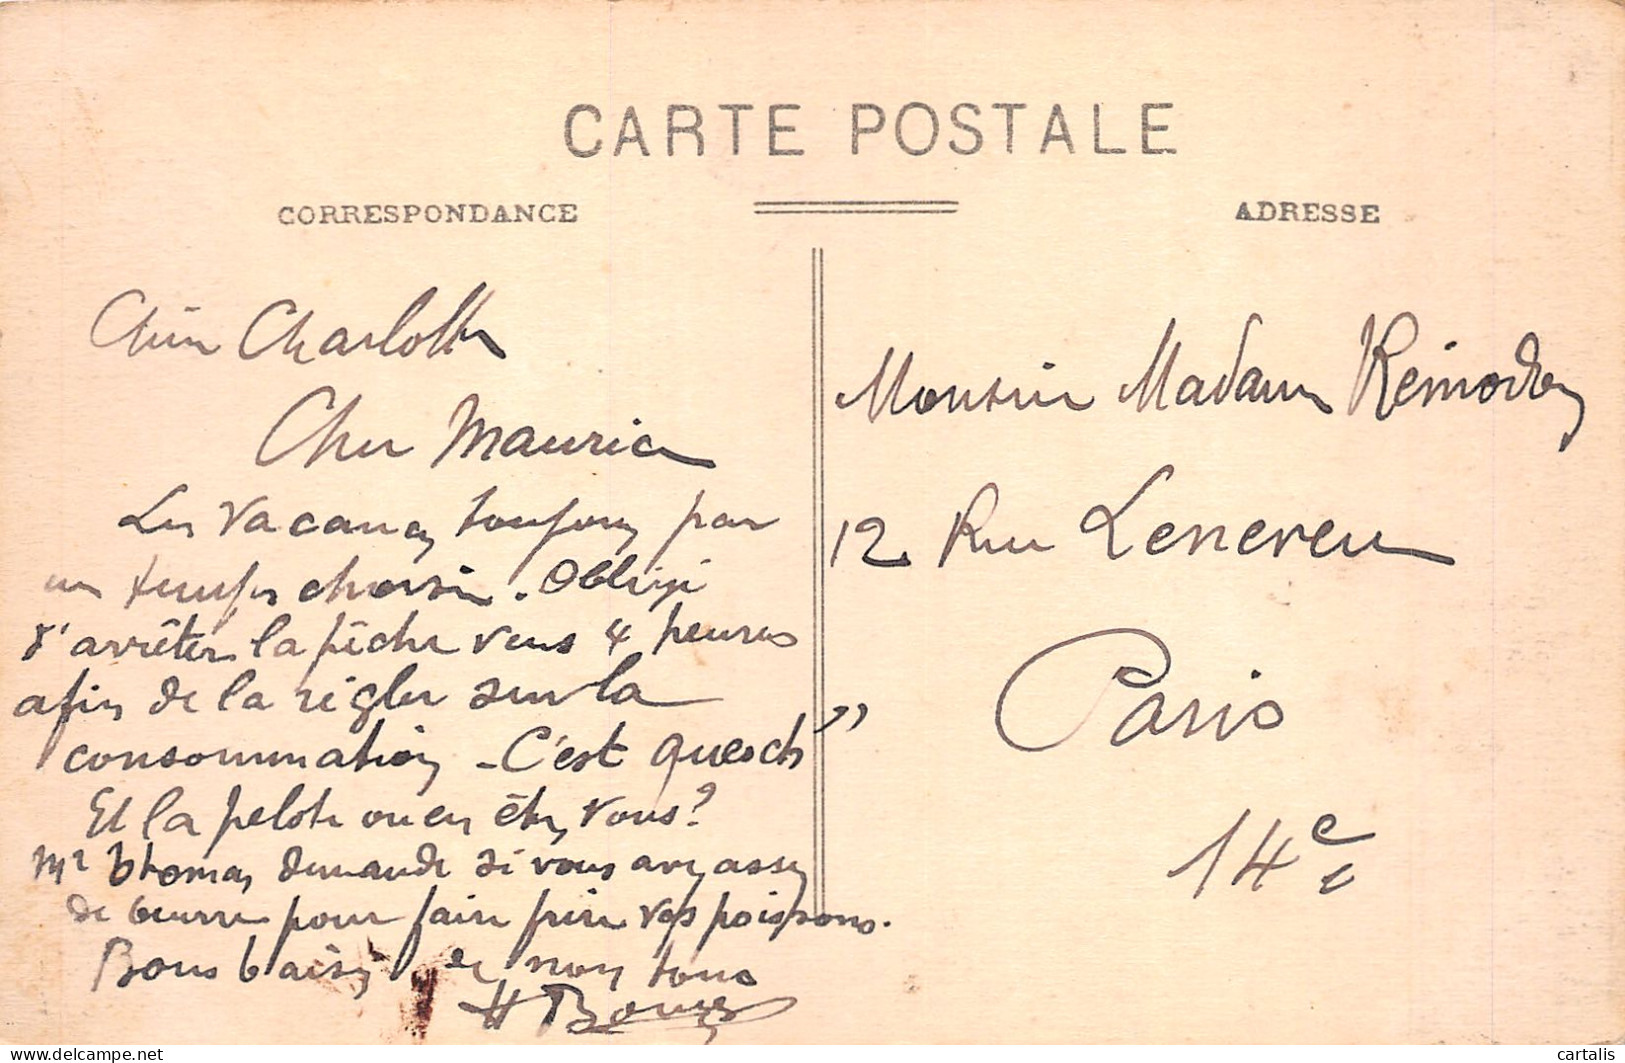 CARTE POSTALE
CORRESPONDANCE
ADRESSE
Chère Charlotte
Cher Maurice
Les Vacances toujours par
un temps choisi. Obligé
d'arrêter la pêche vers 4 heures
afin de la régler sur la
consommation - C'est quesch"
Et la pelote ou en êtes vous?
Mr Thomas demande si vous avez assez
de beurre pour faire frire vos poissons.
Bons baisers de nous tous
H
Monsieur Madame
12 Rue Leneveu
Paris
14e
cartalis
delcampe.net